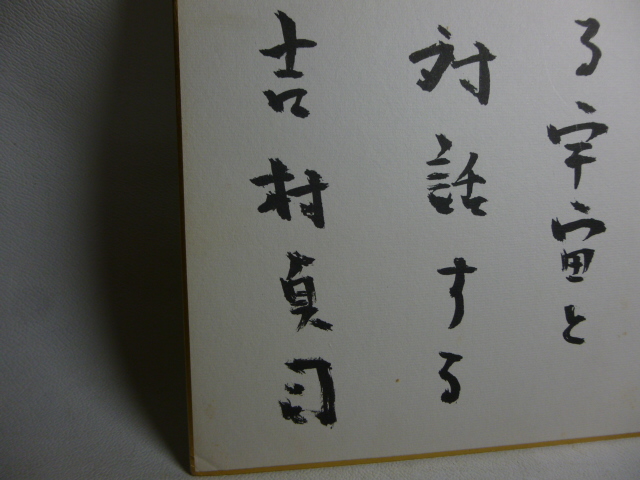 る宇宙と
対話する
吉村貞司